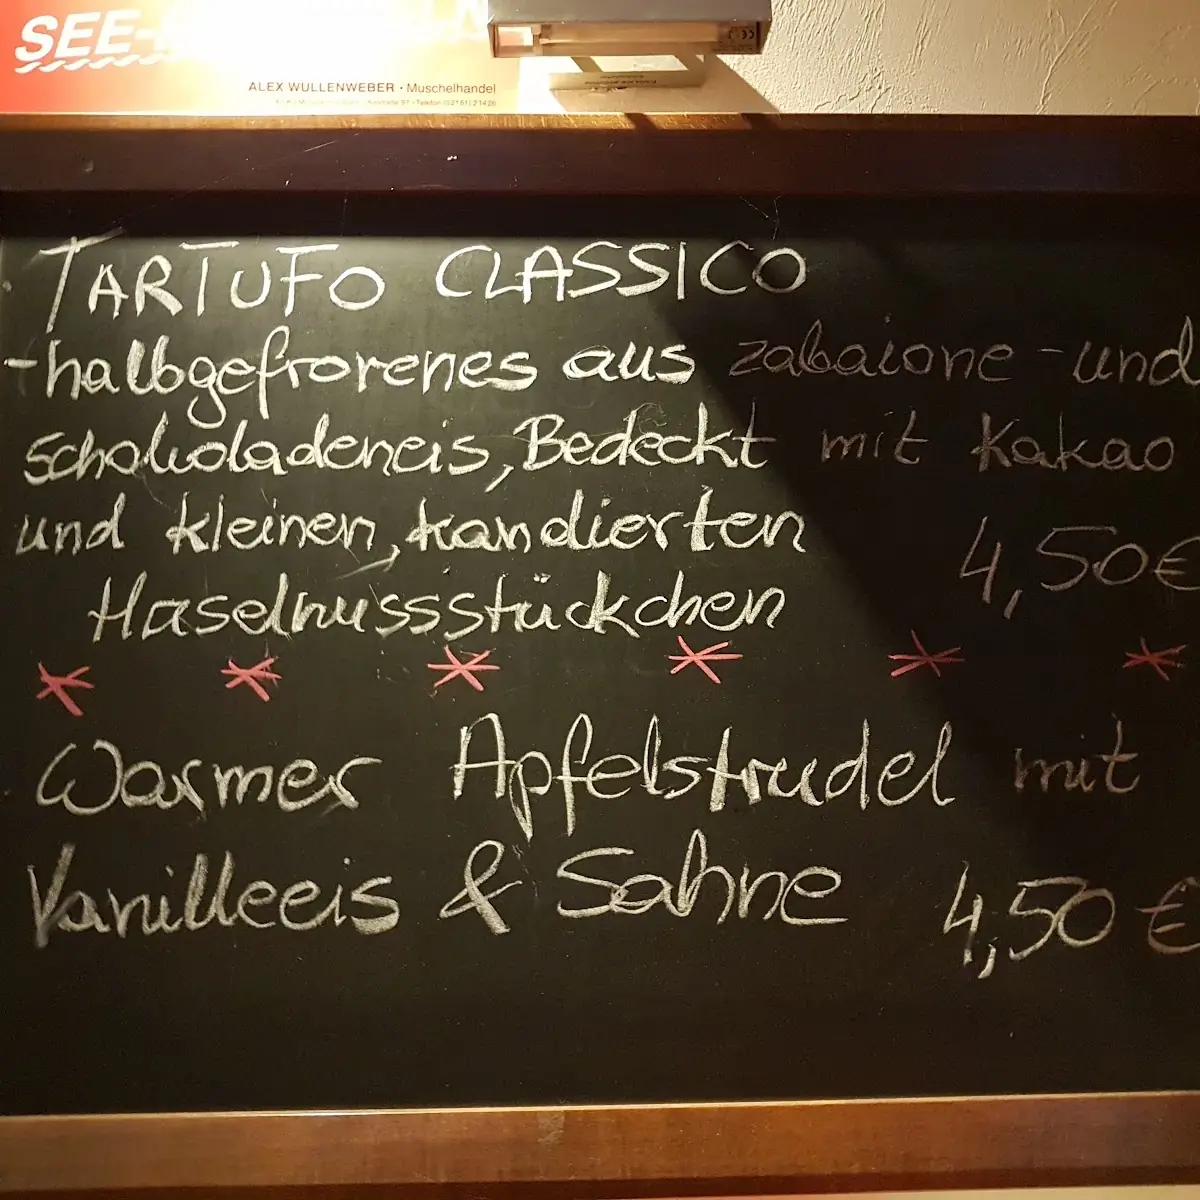 SEE-
ALEX WULLENWEBER · Muschelhandel
TARTUFO CLASSICO
-halbgefrorenes aus zabaione-und
schokoladeneis, Bedeckt mit Kakao
und kleinen, kandierten
4,50€
Haselnussstückchen
Warmer Apfelstrudel mit
Vanilleeis & Sahne 4,50 €